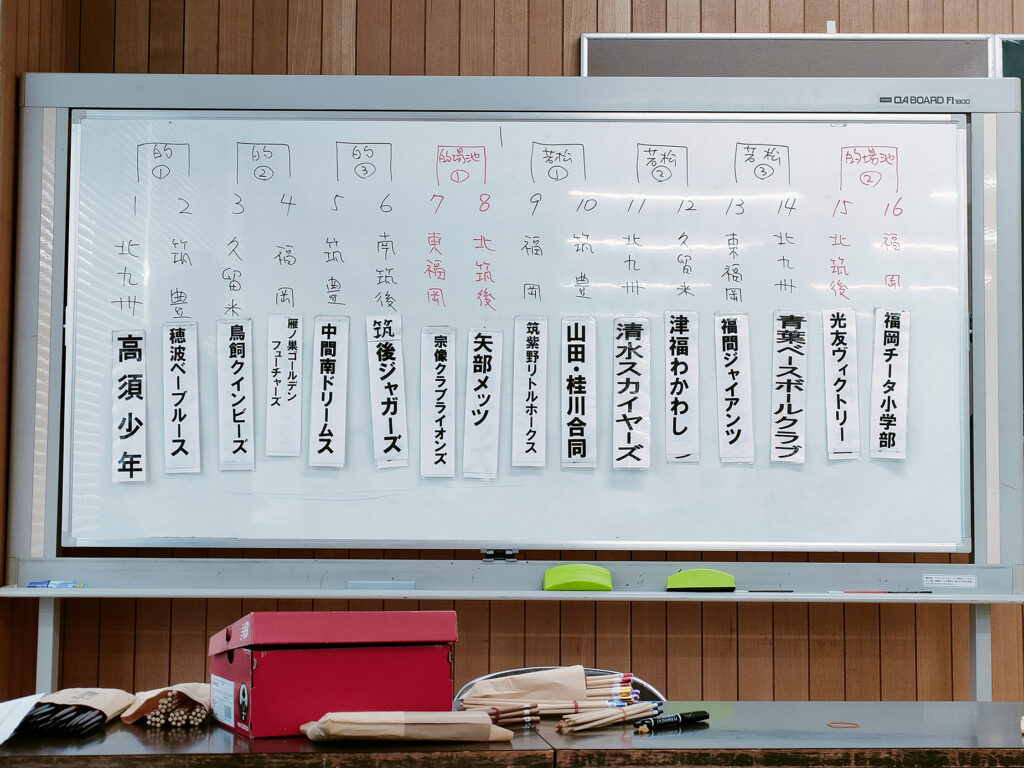 OA BOARD F1 1800
的 ①
的 ②
的 ③
的場池 ①
若松 ①
若松 ②
若松 ③
的場池 ②
1 2 3 4 5 6 7 8 9 10 11 12 13 14 15 16
北九州
筑豊
久留米
福岡
筑豊
南筑後
東福岡
北筑後
福岡
筑豊
北九州
久留米
東福岡
北九州
北筑後
福岡
高須少年
穂波ベーブルース
鳥飼クインビーズ
雁ノ巣ゴールデン
フューチャーズ
中間南ドリームス
筑後ジャガーズ
宗像クラブライオンズ
矢部メッツ
筑紫野リトルホークス
山田・桂川合同
清水スカイヤーズ
津福わかわし
福間ジャイアンツ
青葉ベースボールクラブ
光友ヴィクトリー
福岡チータ小学部